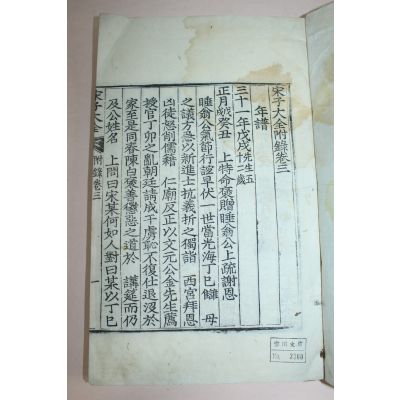 宋子大全附錄卷三
年譜
三十一年戊戌先生五十二歲
正月癸丑 上特命褒贈睡翁公上疏謝恩
睡翁公氣節行誼早伏一世當光海丁巳讎 母
之議方急以新進士抗義折之獨詣 西宮拜恩
凶徒怒削儒籍 仁廟反正以文元公金先生薦
授官丁卯之亂朝廷請成于虜恥不復仕退沒於
家至是同春陳白褒善癉惡之道於 講筵而仍
及公姓名 上問曰宋某何如人對曰某以丁巳
宋子大全 附錄卷三 一
No. 2360